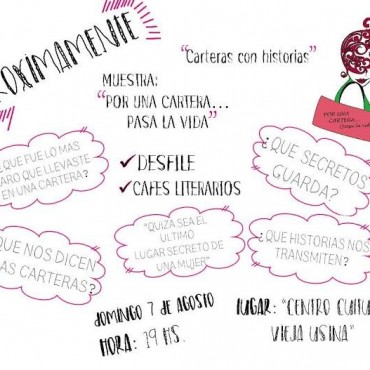 ROXIMAMENTE
"Carteras con historias"
MUESTRA:
"POR UNA CARTERA...
PASA LA VIDA"
POR UNA
CARTERA...
✓ DESFILE
✓ CAFES LITERARIOS
QUE FUE LO MAS
ARO QUE LLEVASTE
EN UNA CARTERA?
¿QUE SECRETOS
GUARDA?
QUE NOS DICEN
AS CARTERAS?
"QUIZA SEA EL
ULTIMO
LUGAR SECRETO DE
UNA MUJER"
¿QUE HISTORIAS NOS
TRANSMITEN?
DOMINGO 7 DE AGOSTO
HORA: 19 HS.
LUGAR: "CENTRO CULTU
VIEJA USINA"